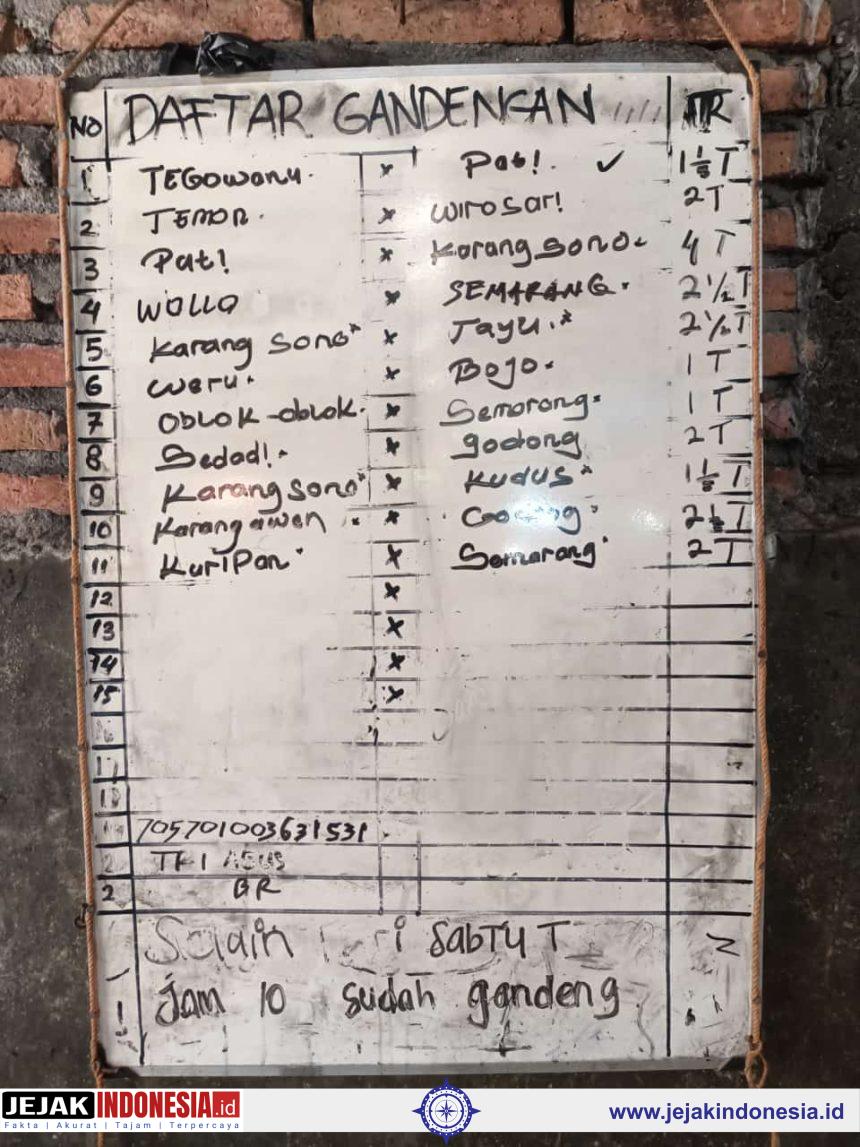 NO DAFTAR GANDENGAN
1 TEGOWANU. x Pati. ✓ T
2 TEMOR. x WIROSARI 2 T
3 Pati x Karang sono 4 T
4 WOLLO x SEMARANG. 2 1/2 T
5 Karang sono x Tayu. 2 1/2 T
6 Weru. x Bojo. 1 T
7 OBLOK-OBLOK. x Semarang. 1 T
8 Sedadi. x godong 2 T
9 Karang sono x Kudus T
10 Karang awen x T
11 KURIPAN. x Semarang 2 T
12 x
13 x
14 x
15 x
705701003631531
2 BR
Selain SABTU
jam 10 sudah gandeng
JEJAKINDONESIA.id
Fakta | Akurat | Tajam | Terpercaya
www.jejakindonesia.id